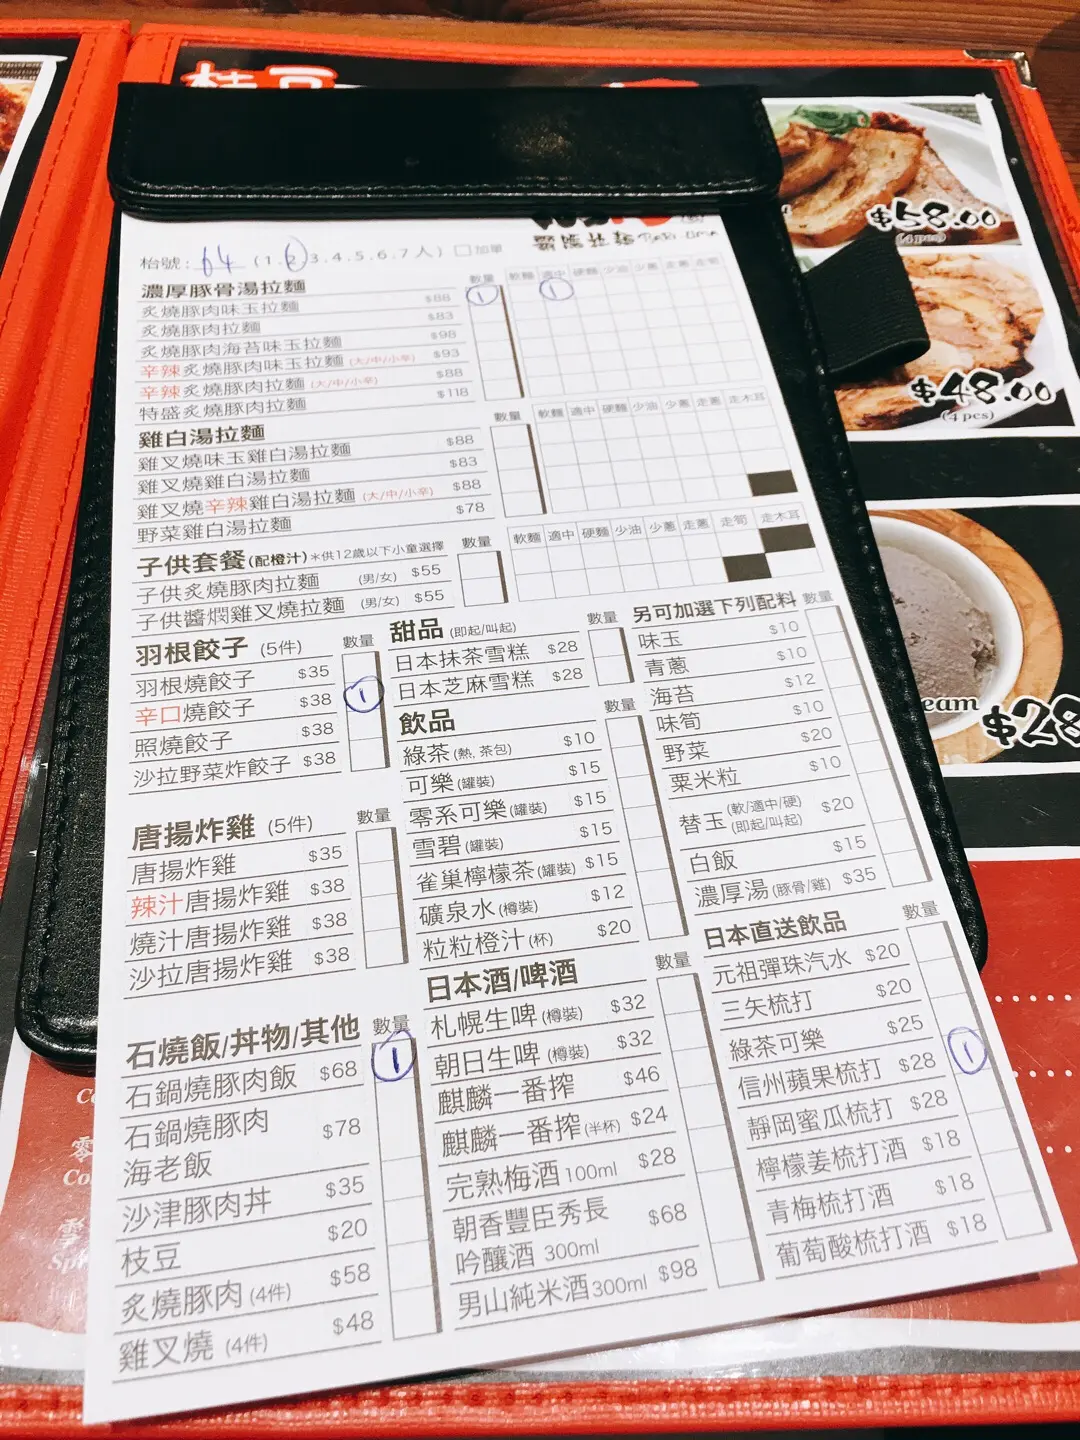 枝豆
$58.00
(4pcs)
$48.00
(4 pcs)
eam
$28
枱號: 64 (1.2.3.4.5.6.7人) □加單
濃厚豚骨湯拉麵 數量 軟麵 適中 硬麵 少油 少蔥 走蔥 走筍
炙燒豚肉味玉拉麵 $88 1 1
炙燒豚肉拉麵 $83
炙燒豚肉海苔味玉拉麵 $98
辛辣炙燒豚肉味玉拉麵 (大/中/小辛) $93
辛辣炙燒豚肉拉麵 (大/中/小辛) $88
特盛炙燒豚肉拉麵 $118
雞白湯拉麵 數量 軟麵 適中 硬麵 少油 少蔥 走蔥 走木耳
雞叉燒味玉雞白湯拉麵 $88
雞叉燒雞白湯拉麵 $83
雞叉燒辛辣雞白湯拉麵 (大/中/小辛) $88
野菜雞白湯拉麵 $78
子供套餐 (配橙汁) *供12歲以下小童選擇 數量 軟麵 適中 硬麵 少油 少蔥 走蔥 走筍 走木耳
子供炙燒豚肉拉麵 (男/女) $55
子供醬燜雞叉燒拉麵 (男/女) $55
羽根餃子 (5件) 數量
羽根燒餃子 $35
辛口燒餃子 $38 1
照燒餃子 $38
沙拉野菜炸餃子 $38
唐揚炸雞 (5件) 數量
唐揚炸雞 $35
辣汁唐揚炸雞 $38
燒汁唐揚炸雞 $38
沙拉唐揚炸雞 $38
石燒飯/丼物/其他 數量
石鍋燒豚肉飯 $68 1
石鍋燒豚肉
海老飯 $78
沙津豚肉丼 $35
枝豆 $20
炙燒豚肉 (4件) $58
雞叉燒 (4件) $48
甜品 (即起/叫起) 數量
日本抹茶雪糕 $28
日本芝麻雪糕 $28
飲品 數量
綠茶 (熱, 茶包) $10
可樂 (罐裝) $15
零系可樂 (罐裝) $15
雪碧 (罐裝) $15
雀巢檸檬茶 (罐裝) $15
礦泉水 (樽裝) $12
粒粒橙汁 (杯) $20
日本酒/啤酒 數量
札幌生啤 (樽裝) $32
朝日生啤 (樽裝) $32
麒麟一番搾 $46
麒麟一番搾 (半杯) $24
完熟梅酒 100ml $28
朝香豐臣秀長
吟釀酒 300ml $68
男山純米酒 300ml $98
另可加選下列配料 數量
味玉 $10
青蔥 $10
海苔 $12
味筍 $10
野菜 $20
粟米粒 $10
替玉 (軟/適中/硬) (即起/叫起) $20
白飯 $15
濃厚湯 (豚骨/雞) $35
日本直送飲品 數量
元祖彈珠汽水 $20
三矢梳打 $20
綠茶可樂 $25
信州蘋果梳打 $28 1
靜岡蜜瓜梳打 $28
檸檬姜梳打酒 $18
青梅梳打酒 $18
葡萄酸梳打酒 $18
零
Co
雪
Spr